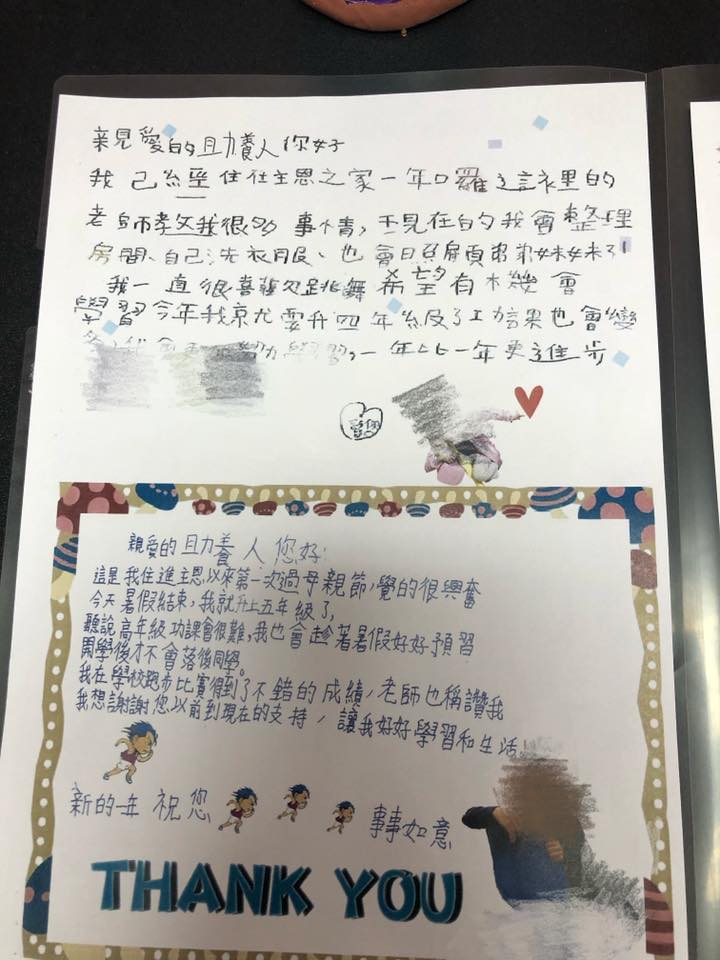 親愛的助養人你好
我已經住在主恩之家一年囉,這裡的
老師教我很多事情,現在的我會整理
房間、自己洗衣服、也會照顧弟弟妹妹了!
我一直很喜歡跳舞希望有機會
學習今年我就要升四年級了功課也會變
努力學習,一年比一年更進步
愛您
親愛的助養人您好:
這是我住進主恩以來第一次過母親節,覺的很興奮
今天暑假結束,我就升上五年級了,
聽說高年級功課會很難,我也會趁著暑假好好預習
開學後才不會落後同學。
我在學校跑步比賽得到了不錯的成績,老師也稱讚我
我想謝謝您以前到現在的支持,讓我好好學習和生活。
新的一年祝您 事事如意
THANK YOU